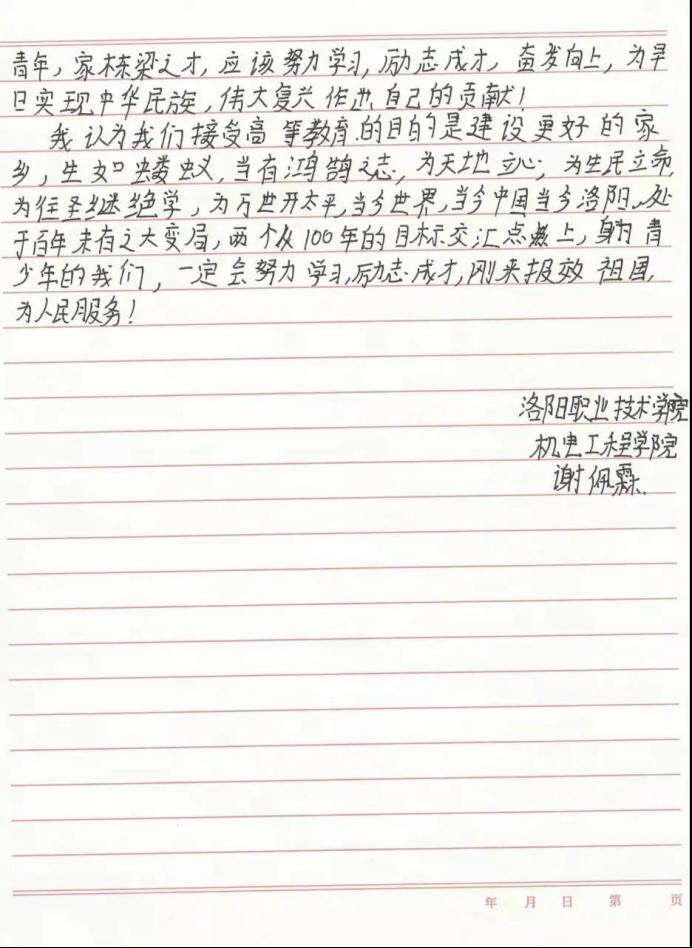 青年,家栋梁之才,应该努力学习,励志成才,奋发向上,为早
日实现中华民族,伟大复兴作出自己的贡献!
我认为我们接受高等教育.的目的是建设更好的家
乡,生如蝼蚁,当有鸿鹄之志,为天地立心,为生民立命,
为往圣继绝学,为万世开太平,当今世界,当今中国当今洛阳,处
于百年未有之大变局,两个从100年的目标交汇点上,身为青
少年的我们,一定会努力学习,励志成才,刚来报效祖国,
为人民服务!
洛阳职业技术学院
机电工程学院
谢佩霖.
年 月 日 第 页